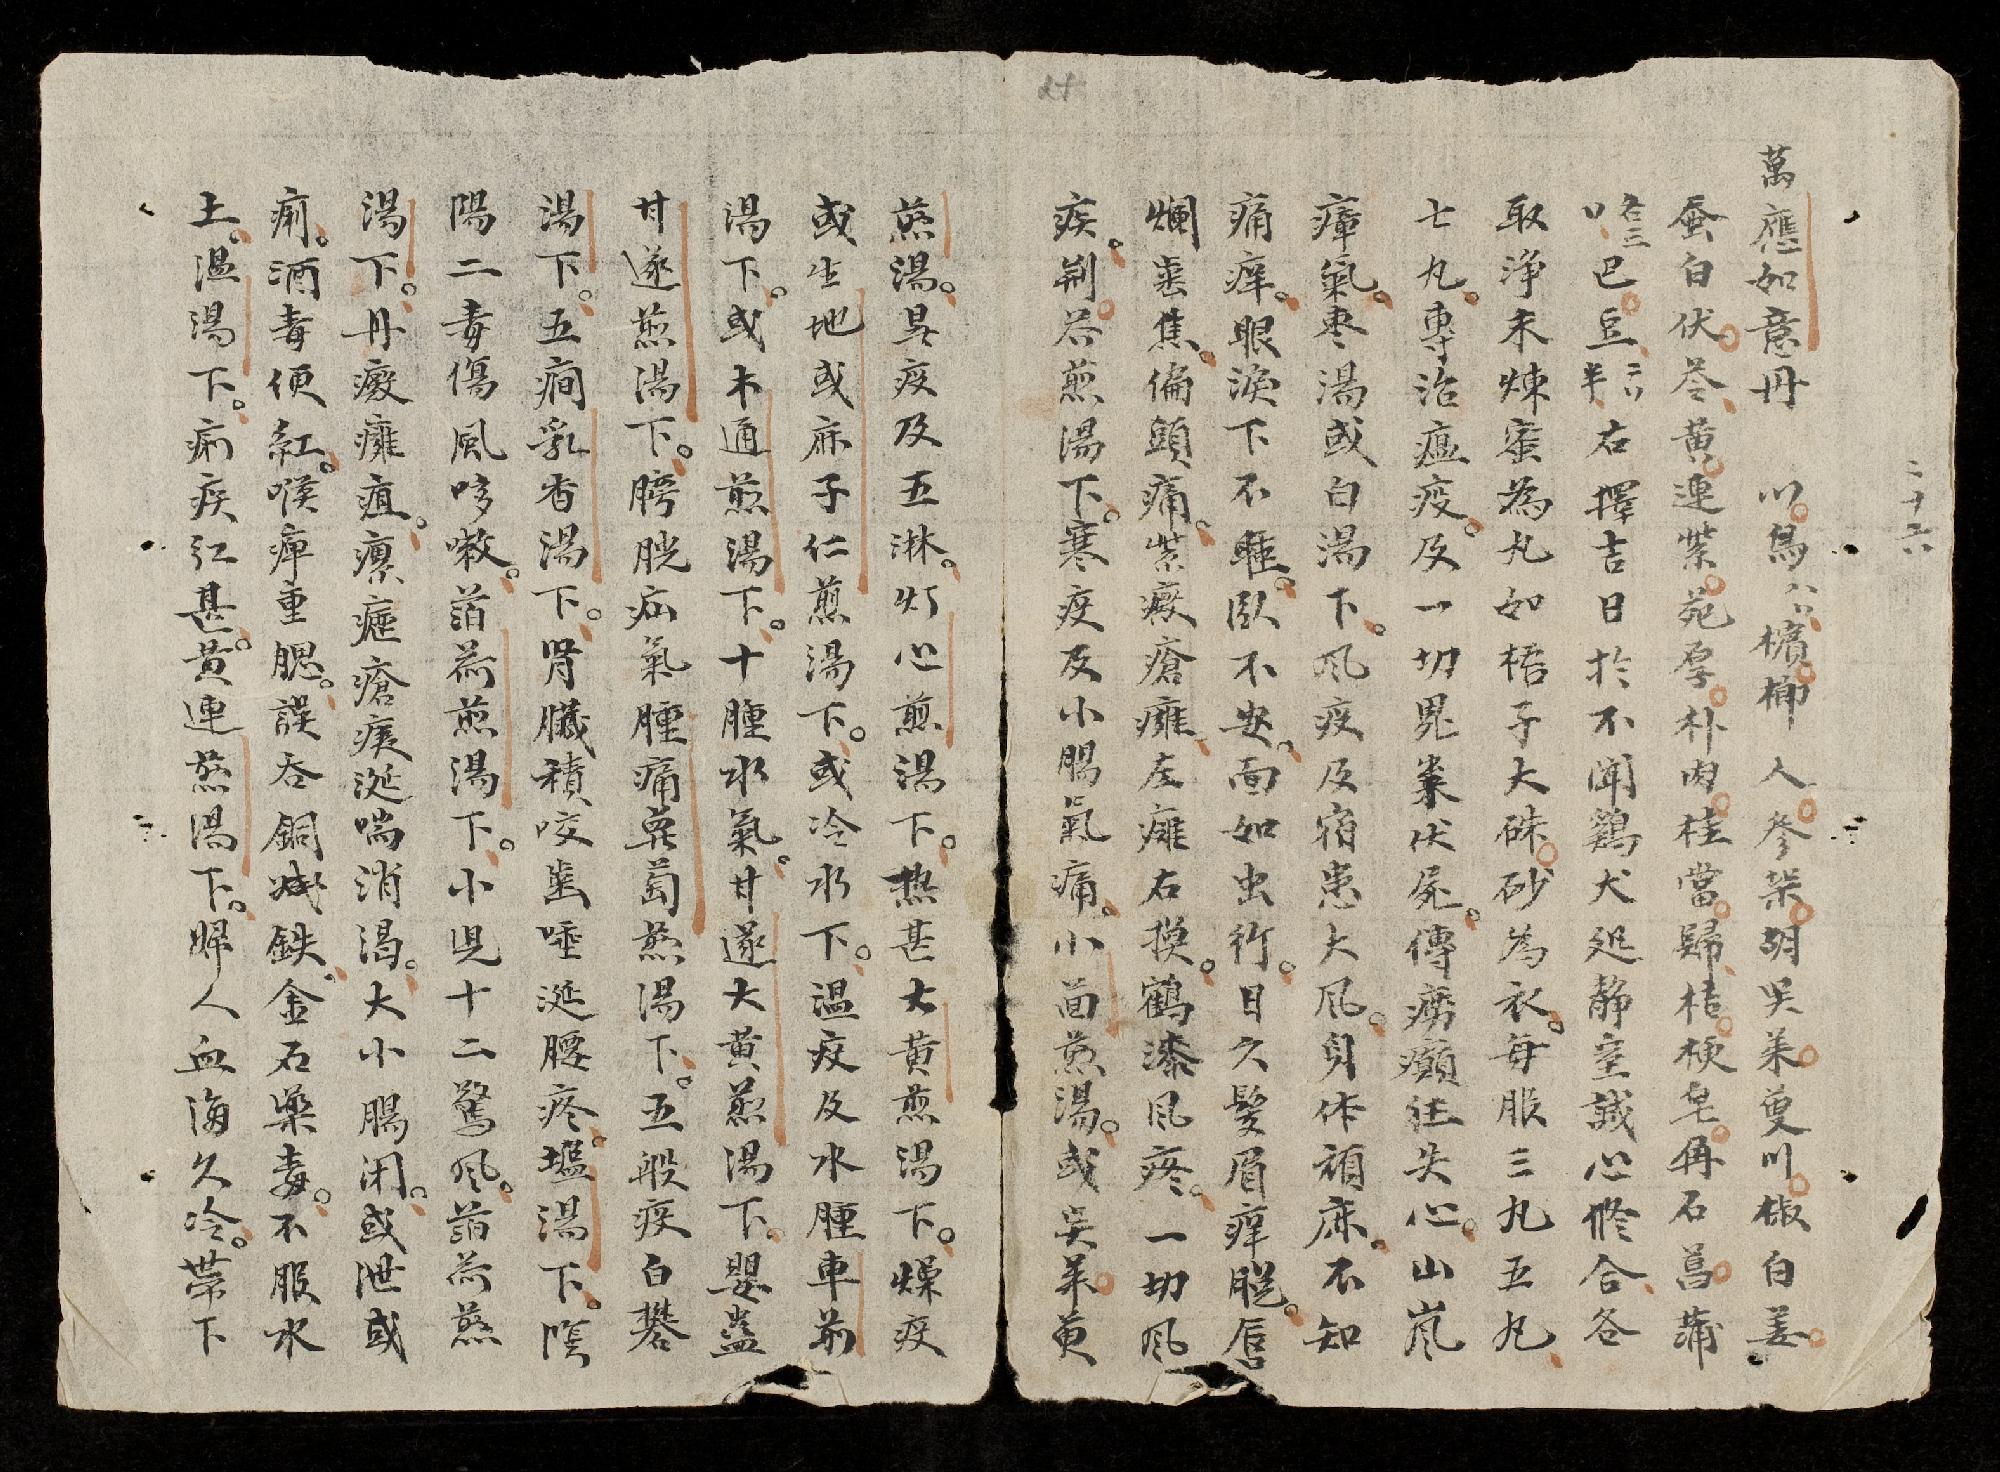 二十六
萬應如意丹 川烏八分 檳榔 人參 柴胡 吳茱萸 川椒 白姜
蚕白伏苓黃連紫苑厚朴肉桂當歸桔梗皂角石菖蒲
各三分巴豆二分半右擇吉日於不聞鷄犬処静室誠心修合各
取淨末煉蜜為丸如梧子大硃砂為衣每服三丸五丸
七丸專治瘟疫及一切鬼祟伏屍傳癆癲狂失心山嵐
瘴氣棗湯或白湯下风疫及宿患大风身体頑麻不知
痛痒眼淚下不睡臥不安面如虫行日久髮眉痒脱唇
爛齒焦偏頭痛紫癜瘡癰左癱右摸鶴漆风疼一切风
疾荆芥煎湯下寒疫及小腸氣痛小茴煎湯或吴茱萸
煎湯具疫及五淋灯心煎湯下热甚大黄煎湯下燥疫
或生地或麻子仁煎湯下或冷水下温疫及水腫車前
湯下或木通煎湯下十腫水氣甘遂大黄煎湯下嬰蠱
甘遂煎湯下膀胱疝氣腫痛萆萄煎湯下五般痰白礬
湯下五癎乳香湯下腎臟積咬齒唾涎腰疼塩湯下陰
陽二毒傷風咳嗽萡荷煎湯下小児十二驚风萡荷煎
湯下丹癜癰疽瘰癧瘡痍涎喘消渴大小腸闭或泄或
痢酒毒便紅喉痺重腮誤吞銅鉄金石藥毒不服水
土温湯下痢疾红甚黄連煎湯下婦人血海久冷帶下